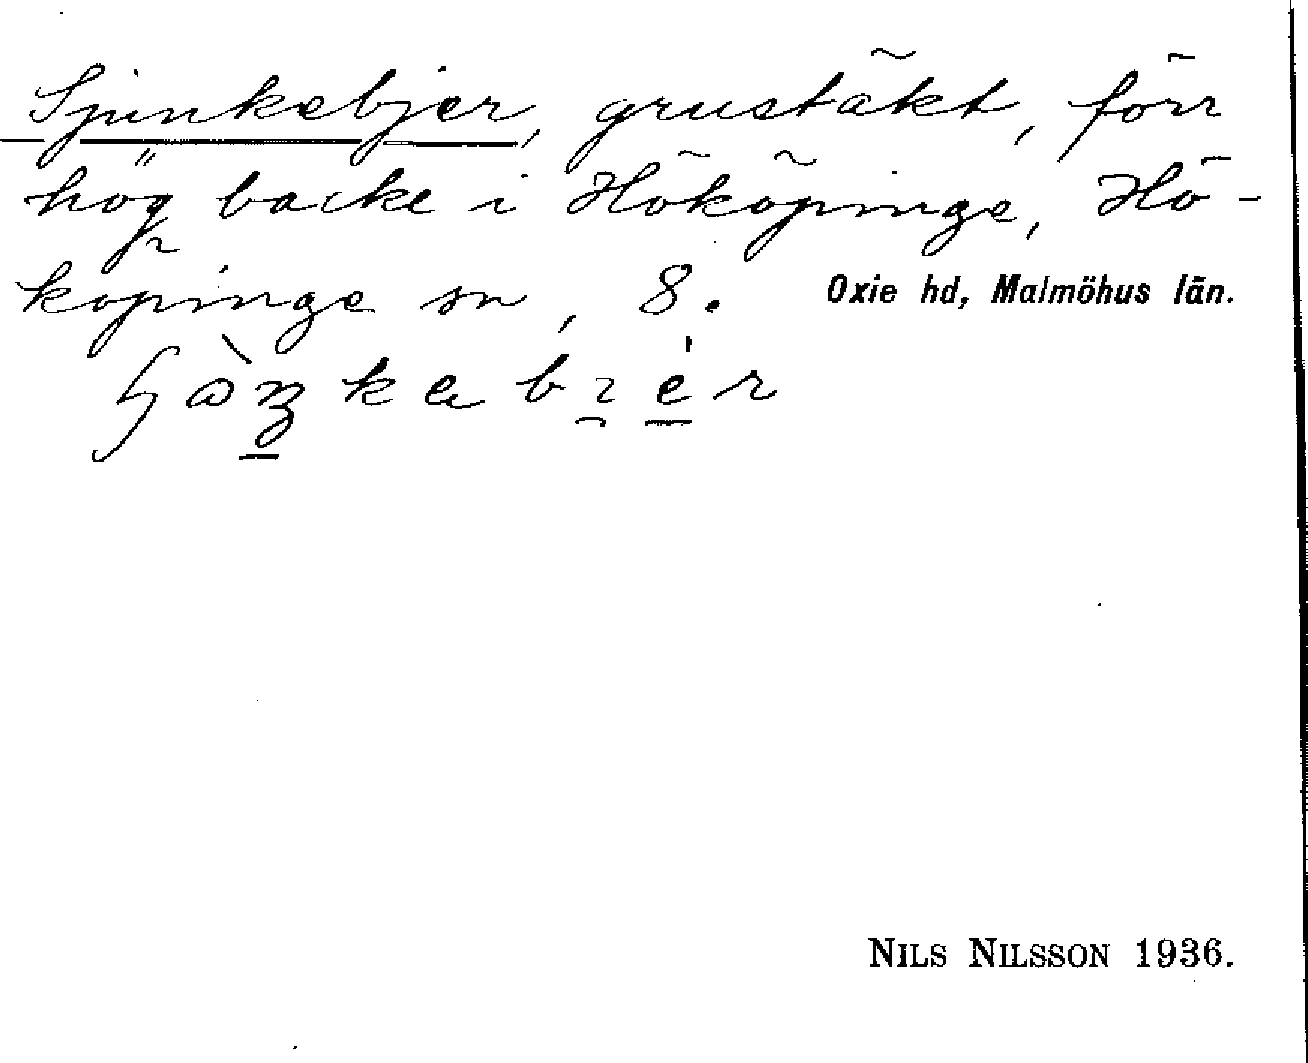 Sjunkebjer, grustäkt, förr
hög backe i Hököpinge, Hö-
köpinge sn, 8. Oxie hd, Malmöhus län.
NILS NILSSON 1936.